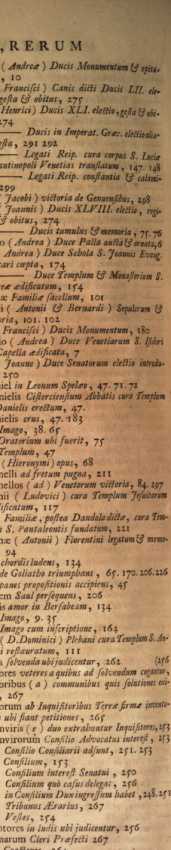 , RERUM
( Andreæ ) Ducis Monumentum & epita-
, 10
Francisci ) Canis dicti Ducis LII. ele-
gesta & obitus, 275
Henrici ) Ducis XLI. electio, gesta & obi-
274
Ducis in Imperat. Græc. electio
gesta, 291 292
Legati Reip. cura corpus S. Luciæ
ntinopoli Venetias translatum, 147. 148
Legati Reip. constantia &
299
Jacobi ) victoria de Genuensibus, 298
Joannis ) Ducis XLVIII. electio, regi-
& obitus, 274
Ducis tumulus & memoria, 75. 76
o ( Andrea ) Duce Palla aucta & ornata, 6
Andrea ) Duce Schola S. Joannis Evang.
cari cæpta, 174
Duce Templum & Monasterium S.
reæ ædificatum, 154
æ Familiæ sacellum, 101
i ( Antonii & Bernardi ) Sepulcrum &
oria, 101. 102
Francisci ) Ducis Monumentum, 180
io ( Andrea ) Duce Venetiarum S. Isidri
Capella ædificata, 7
Joanne ) Duce Senatorum electio introdu-
250
niel in Leonum Spelæo, 47. 71. 72
nielis Cisterciensium Abbatis cura Templum
Danielis erectum, 47.
nielis crus, 47. 183
Imago, 38. 65
Oratorium ubi fuerit, 75
Templum, 47
( Hieronymi ) opus, 68
nelli ad fretum pugna, 211
nellos ( ad ) Venetorum victoria, 84. 297
nii ( Ludovici ) cura Templum Jesuitarum
dificentum, 117
Familiæ, postea Dandalo dictæ, cura Tem-
S. Pantaleontis fundatum, 221
næ ( Antonii ) Florentini legatum & memo-
94
chordis ludens, 134
de Goliatho triumphans, 65. 170. 206. 226
panes propositionis accipiens, 45
em Saul persequens, 206
is amor in Bersabeam, 134
Imago, 9. 35
Imago cum inscriptione, 162
( D. Dominici ) Plebani cura Templum S. An-
i restauratum, 111
a solvenda ubi judicentur, 262 (256
ores veteres a quibus ad solvendum cogantur,
toribus ( a ) communibus quis solutiones exi-
, 267
orum ab Inquisitoribus Terræ firmæ
ubi fiant petitiones, 265
nviris ( e ) duo extrahuntur Inquisitores, 253
nvirorum Consilio Advocatus interest, 253
Consilio Consiliarii adjunt, 251. 253
Consilium, 153
Consilium interest Senatui, 250
Consilium quo casus delegat, 256
in Consilium Dux ingressum habet, 248. 251
Tribunus Ærarius, 267
Vestes, 254
ptores in ludis ubi judicentur, 256
narum Cleri Præfecti 267